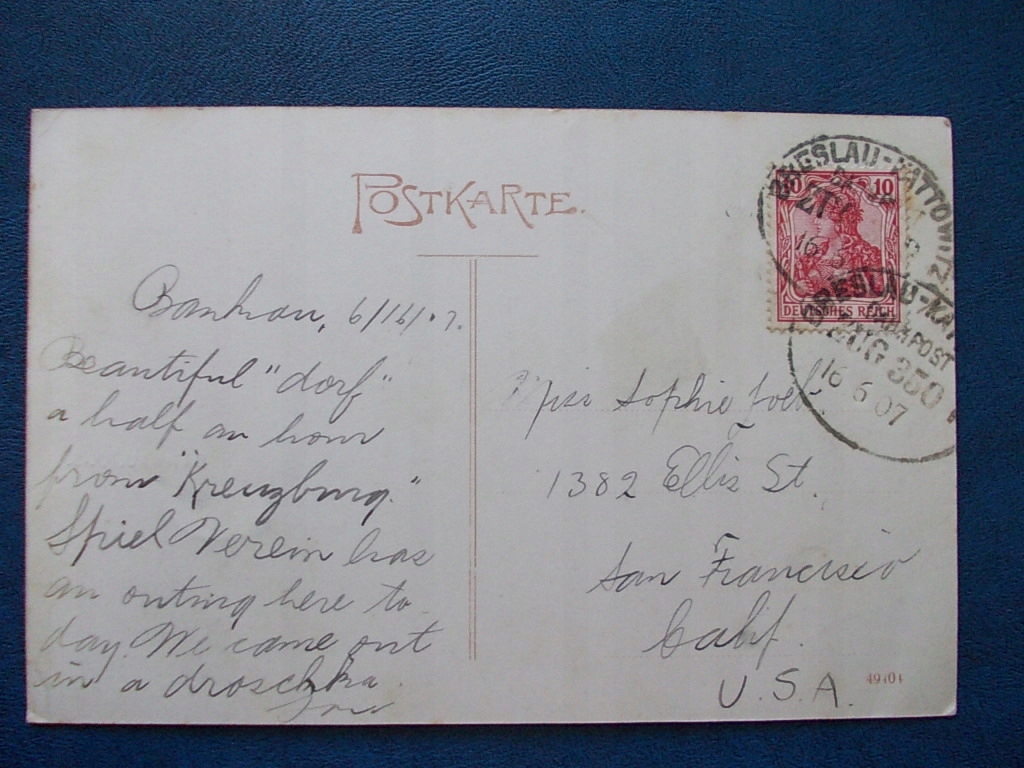 POSTKARTE.
Bankau, 6/16/07.
Beautiful "dorf"
a half an hour
from "Kreuzburg."
Spiel Verein has
an outing here to-
day. We came out
in a droschka.
Miss Sophie
1382 Ellis St.
San Francisco
Calif.
U.S.A.
10 10
DEUTSCHES REICH
BRESLAU-KATTOWITZ
16
BRESLAU-KAT
BAHNPOST
ZUG 350
16 6 07
49404